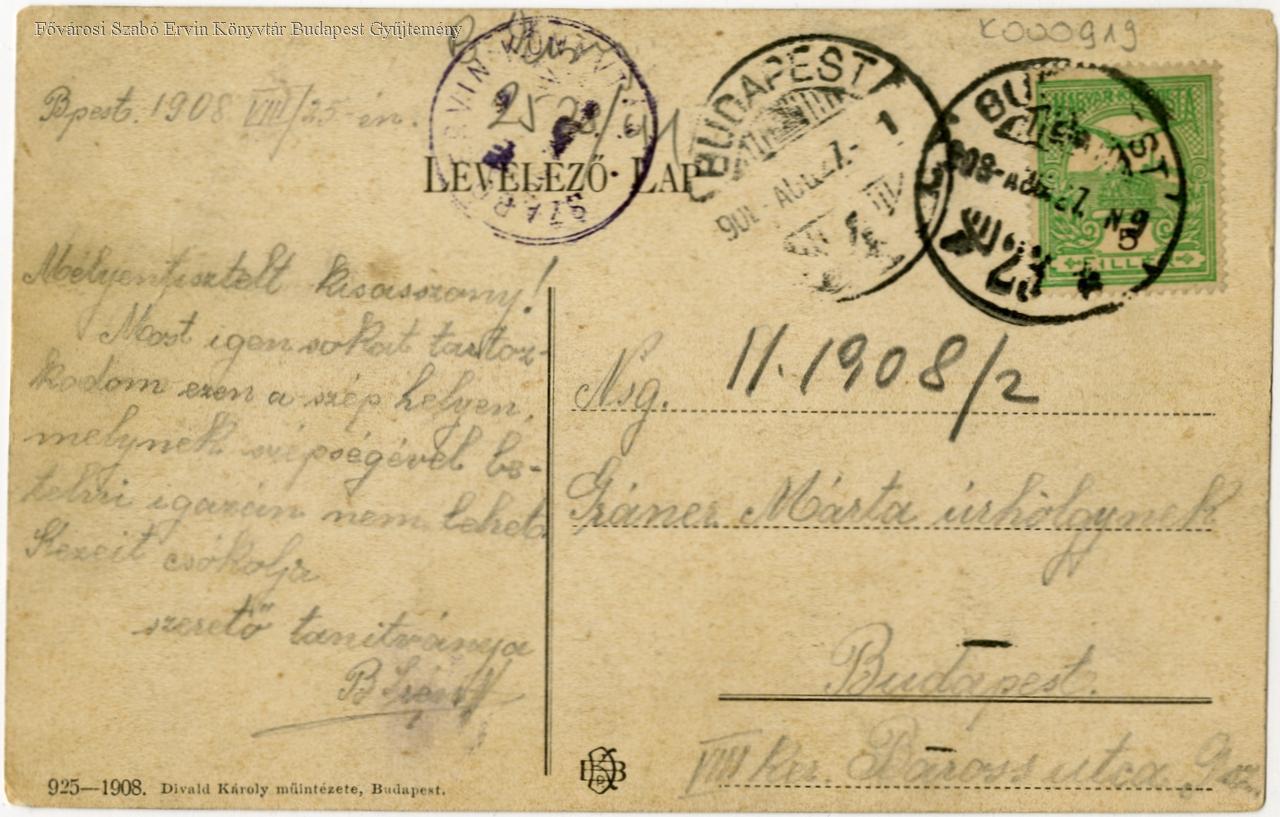 Fővárosi Szabó Ervin Könyvtár Budapest Gyűjtemény
K000919
Bpest. 1908 VIII/25-én.
LEVELEZŐ-LAP
BUDAPEST
908-AUG.27.
BUDAPEST
908-AUG.27. N9
MAGYAR KIR. POSTA
5
FILLÉR
Mélyentisztelt kisasszony!
Most igen sokat tartóz-
kodom ezen a szép helyen,
melynek szépségével be-
telni igazán nem lehet.
Kezeit csókolja
szerető tanitványa
B
II.1908/2
Nsg.
Gráner Márta úrhölgynek
Budapest.
VIII ker. Báross utca 9
925—1908. Divald Károly műintézete, Budapest.